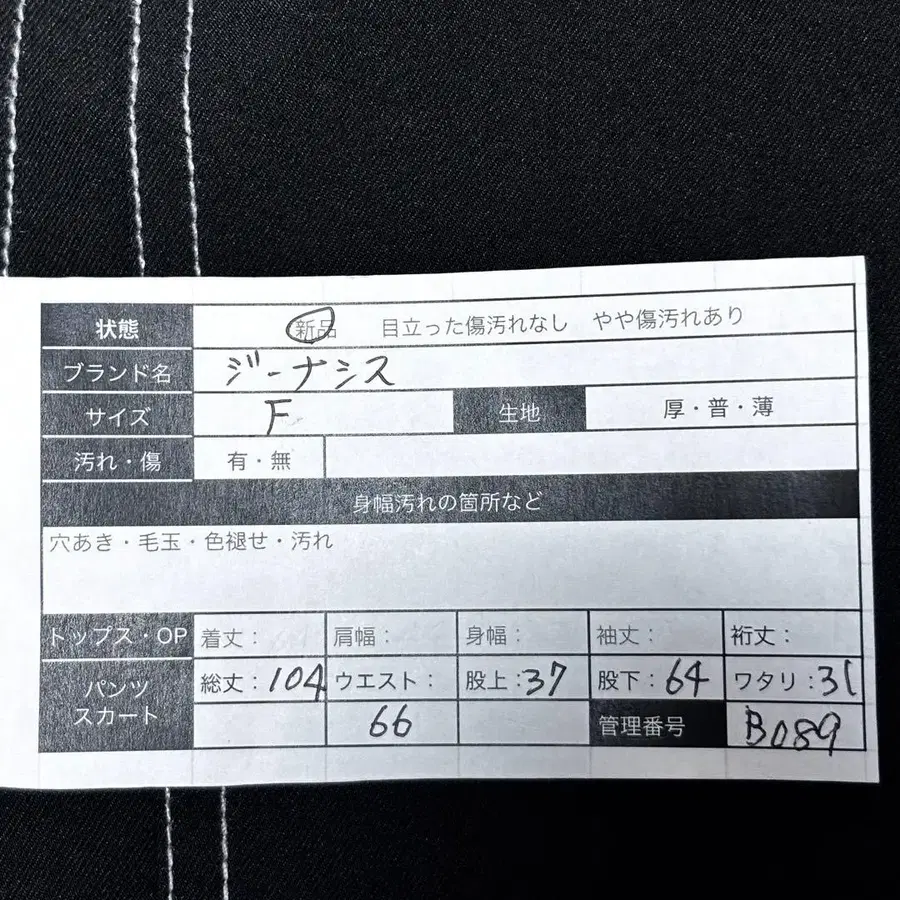 状態 新品 目立った傷汚れなし やや傷汚れあり
ブランド名 ジーナシス
サイズ F 生地 厚・普・薄
汚れ・傷 有・無
身幅汚れの箇所など
穴あき・毛玉・色褪せ・汚れ
トップス・OP 着丈: 肩幅: 身幅: 袖丈: 裄丈:
パンツ スカート 総丈:104 ウエスト: 股上:37 股下:64 ワタリ:31
66 管理番号 B089